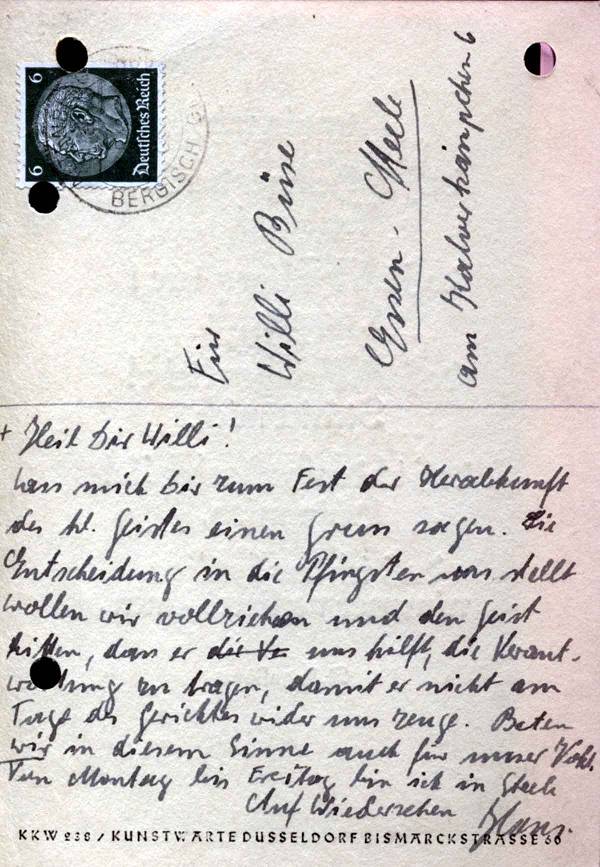 6 6
Deutsches Reich
BERGISCH G
Für
Willi Büse
Essen-Steele
am Kalverkämpchen 6
+ Heil dir Willi!
Lass mich dir zum Fest der Herabkunft
des hl. Geistes einen Gruss sagen. Die
Entscheidung in die Pfingsten uns stellt
wollen wir vollziehen und den Geist
bitten, dass er uns hilft, die Verant-
wortung zu tragen, damit er nicht am
Tage des Gerichtes wider uns zeuge. Beten
wir in diesem Sinne auch für unser Volk.
Von Montag bis Freitag bin ich in Steele
Auf Wiedersehen Hans.
KKW 238 / KUNSTWARTE DÜSSELDORF BISMARCKSTRASSE 36